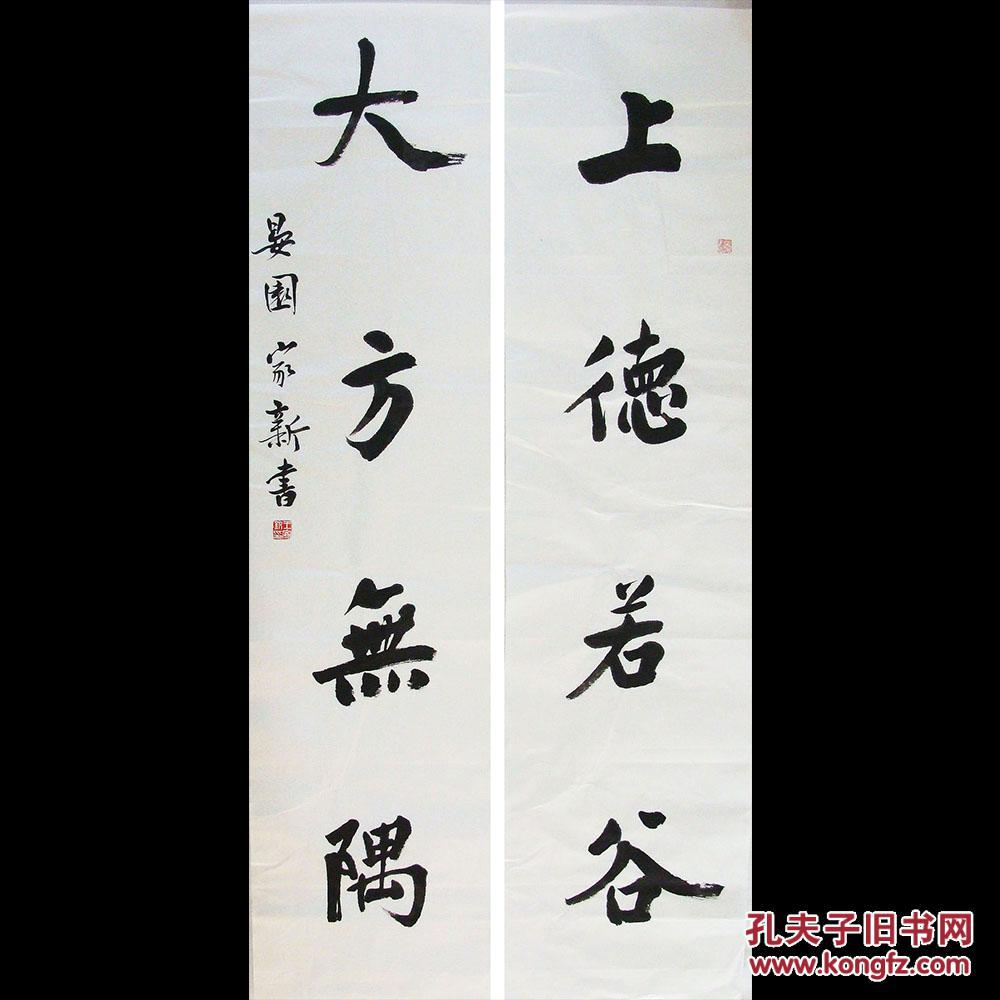 上德若谷
大方無隅
晏園家新書
孔夫子旧书网
www.kongfz.com